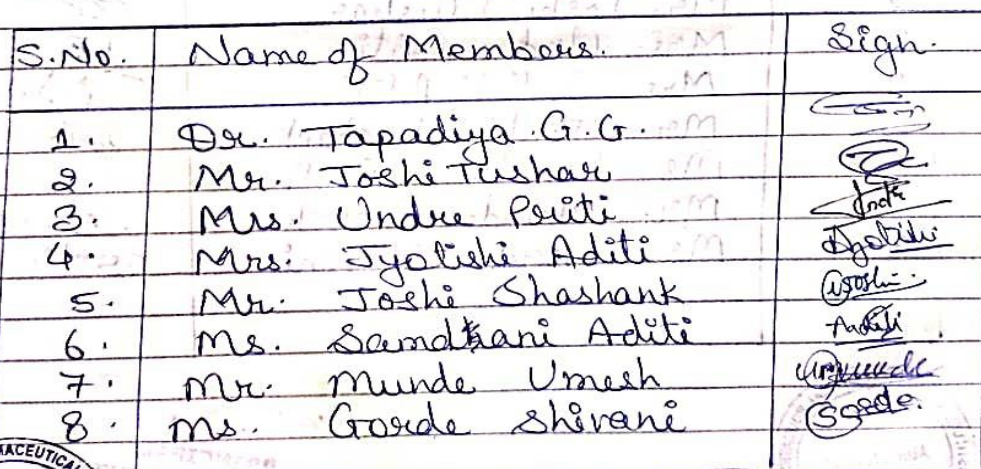 S.No. Name of Members. Sign.
1. Dr. Tapadiya .G.G.
2. Mr. Joshi Tushar
3. Mrs. Undre Priti
4. Mrs. Jyotishi Aditi
5. Mr. Joshi Shashank
6. Ms. Samdhani Aditi
7. Mr. Munde Umesh
8. Ms. Gorde Shivani
ACEUTICA